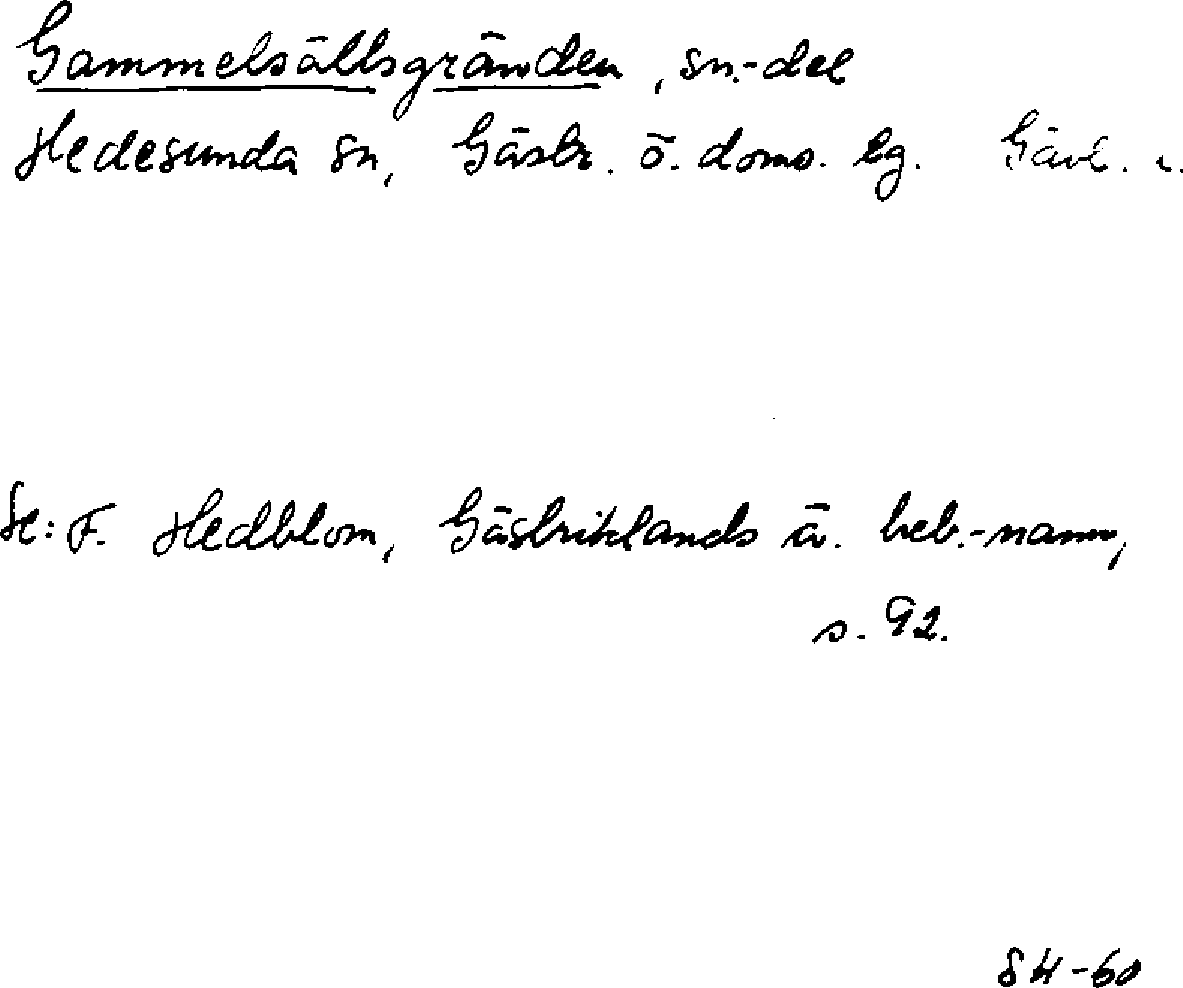 Gammelsällsgränden, sn.-del
Hedesunda sn, Gästr. ö. doms. tg. Gävl. l.
Se: F. Hedblom, Gästriklands ä. beb.-namn,
s. 92.
SH-60